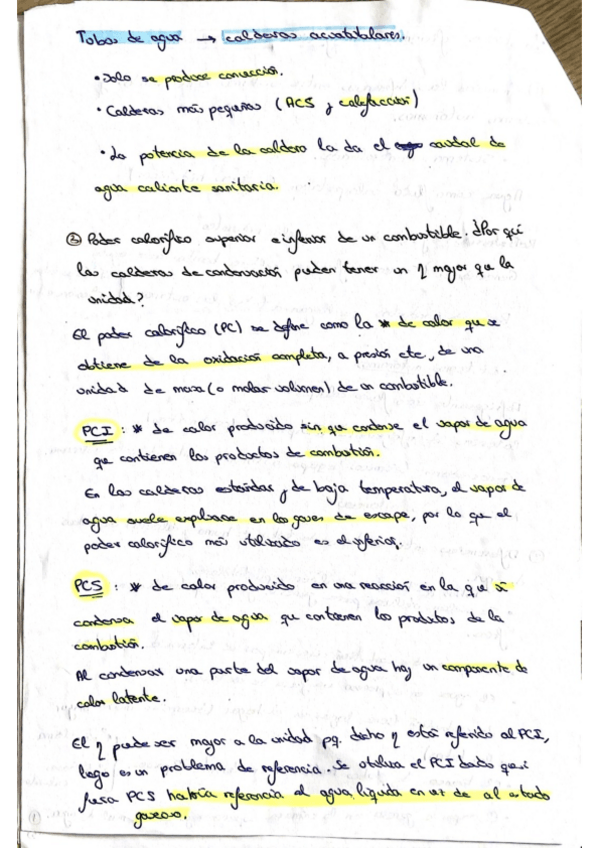 Tubos de agua → calderas acuotubulares.
• Solo se produce convección.
• Calderas más pequeñas (ACS y calefacción)
• La potencia de la caldera la da el caudal de
agua caliente sanitaria.
② Poder calorífico superior e inferior de un combustible. ¿Por qué
las calderas de condensación pueden tener un η mayor que la
unidad?
El poder calorífico (PC) se define como la * de calor que se
obtiene de la oxidación completa, a presión cte, de una
unidad de masa (o molar volumen) de un combustible.
PCI : * de calor producido sin que condense el vapor de agua
que contienen los productos de combustión.
En las calderas estándas y de baja temperatura, el vapor de
agua suele expulsarse en los gases de escape, por lo que el
poder calorífico más utilizado es el inferior.
PCS : * de calor producido en una reacción en la que si
condensa el vapor de agua que contienen los productos de la
combustión.
Al condensar una parte del vapor de agua hay un componente de
calor latente.
El η puede ser mayor a la unidad pq. dicho η está referido al PCI,
luego es un problema de referencia. Se utiliza el PCI dado que si
fuese PCS haría referencia al agua líquida en vez de al estado
gaseoso.
①